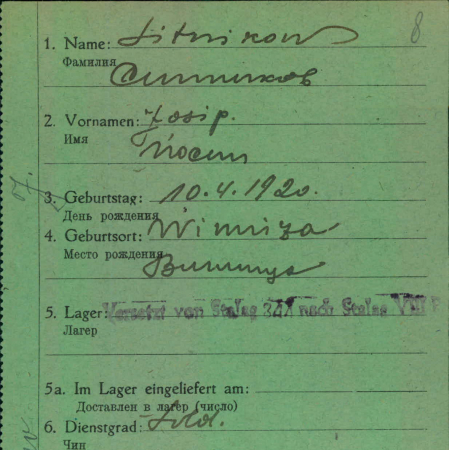 8
1. Name: Sitnikow
Фамилия
Ситников
2. Vornamen: Josip.
Имя
Йосип
3. Geburtstag: 10.4.1920.
День рождения
4. Geburtsort: Winniza
Место рождения
Винница
5. Lager: Versetzt von Stalag nach Stalag VIII
Лагер
5a. Im Lager eingeliefert am:
Доставлен в лагер (число)
6. Dienstgrad: Sold.
Чин